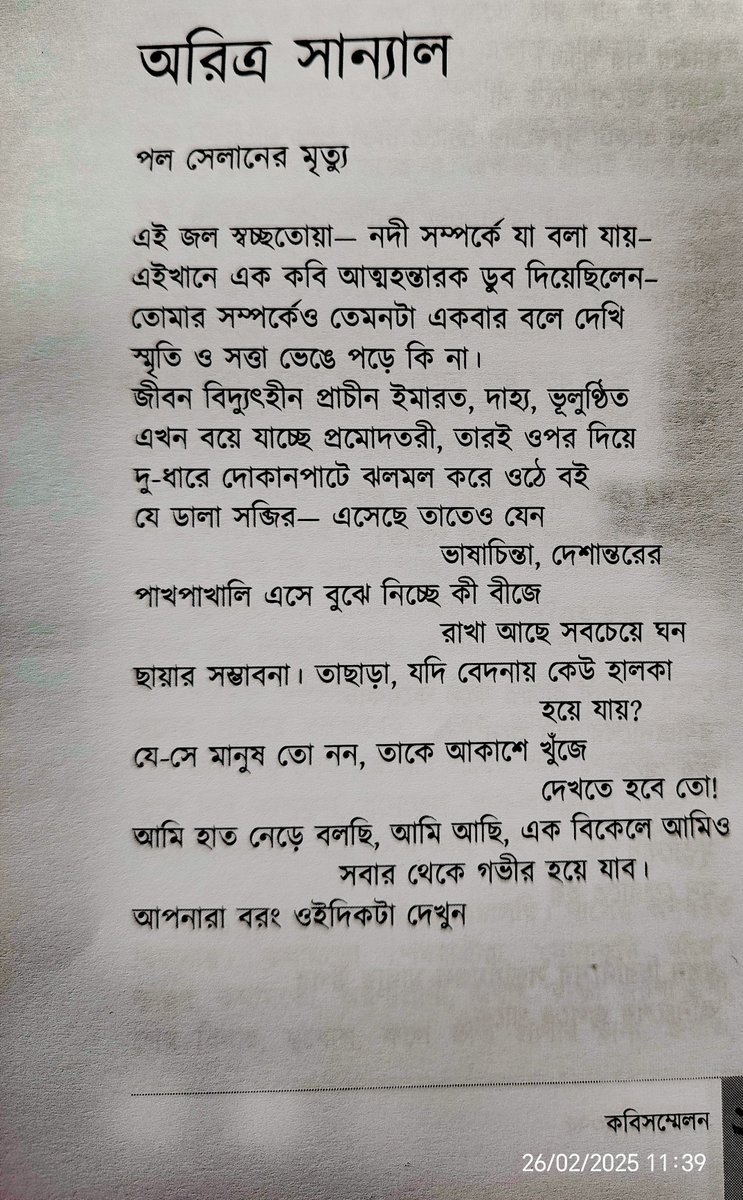 অরিত্র সান্যাল
পল সেলানের মৃত্যু
এই জল স্বচ্ছতোয়া— নদী সম্পর্কে যা বলা যায়–
এইখানে এক কবি আত্মহন্তারক ডুব দিয়েছিলেন–
তোমার সম্পর্কেও তেমনটা একবার বলে দেখি
স্মৃতি ও সত্তা ভেঙে পড়ে কি না।
জীবন বিদ্যুৎহীন প্রাচীন ইমারত, দাহ্য, ভূলুণ্ঠিত
এখন বয়ে যাচ্ছে প্রমোদতরী, তারই ওপর দিয়ে
দু-ধারে দোকানপাটে ঝলমল করে ওঠে বই
যে ডালা সব্জির— এসেছে তাতেও যেন
ভাষাচিন্তা, দেশান্তরের
পাখপাখালি এসে বুঝে নিচ্ছে কী বীজে
রাখা আছে সবচেয়ে ঘন
ছায়ার সম্ভাবনা। তাছাড়া, যদি বেদনায় কেউ হালকা
হয়ে যায়?
যে-সে মানুষ তো নন, তাকে আকাশে খুঁজে
দেখতে হবে তো!
আমি হাত নেড়ে বলছি, আমি আছি, এক বিকেলে আমিও
সবার থেকে গভীর হয়ে যাব।
আপনারা বরং ওইদিকটা দেখুন
কবিসম্মেলন
26/02/2025 11:39